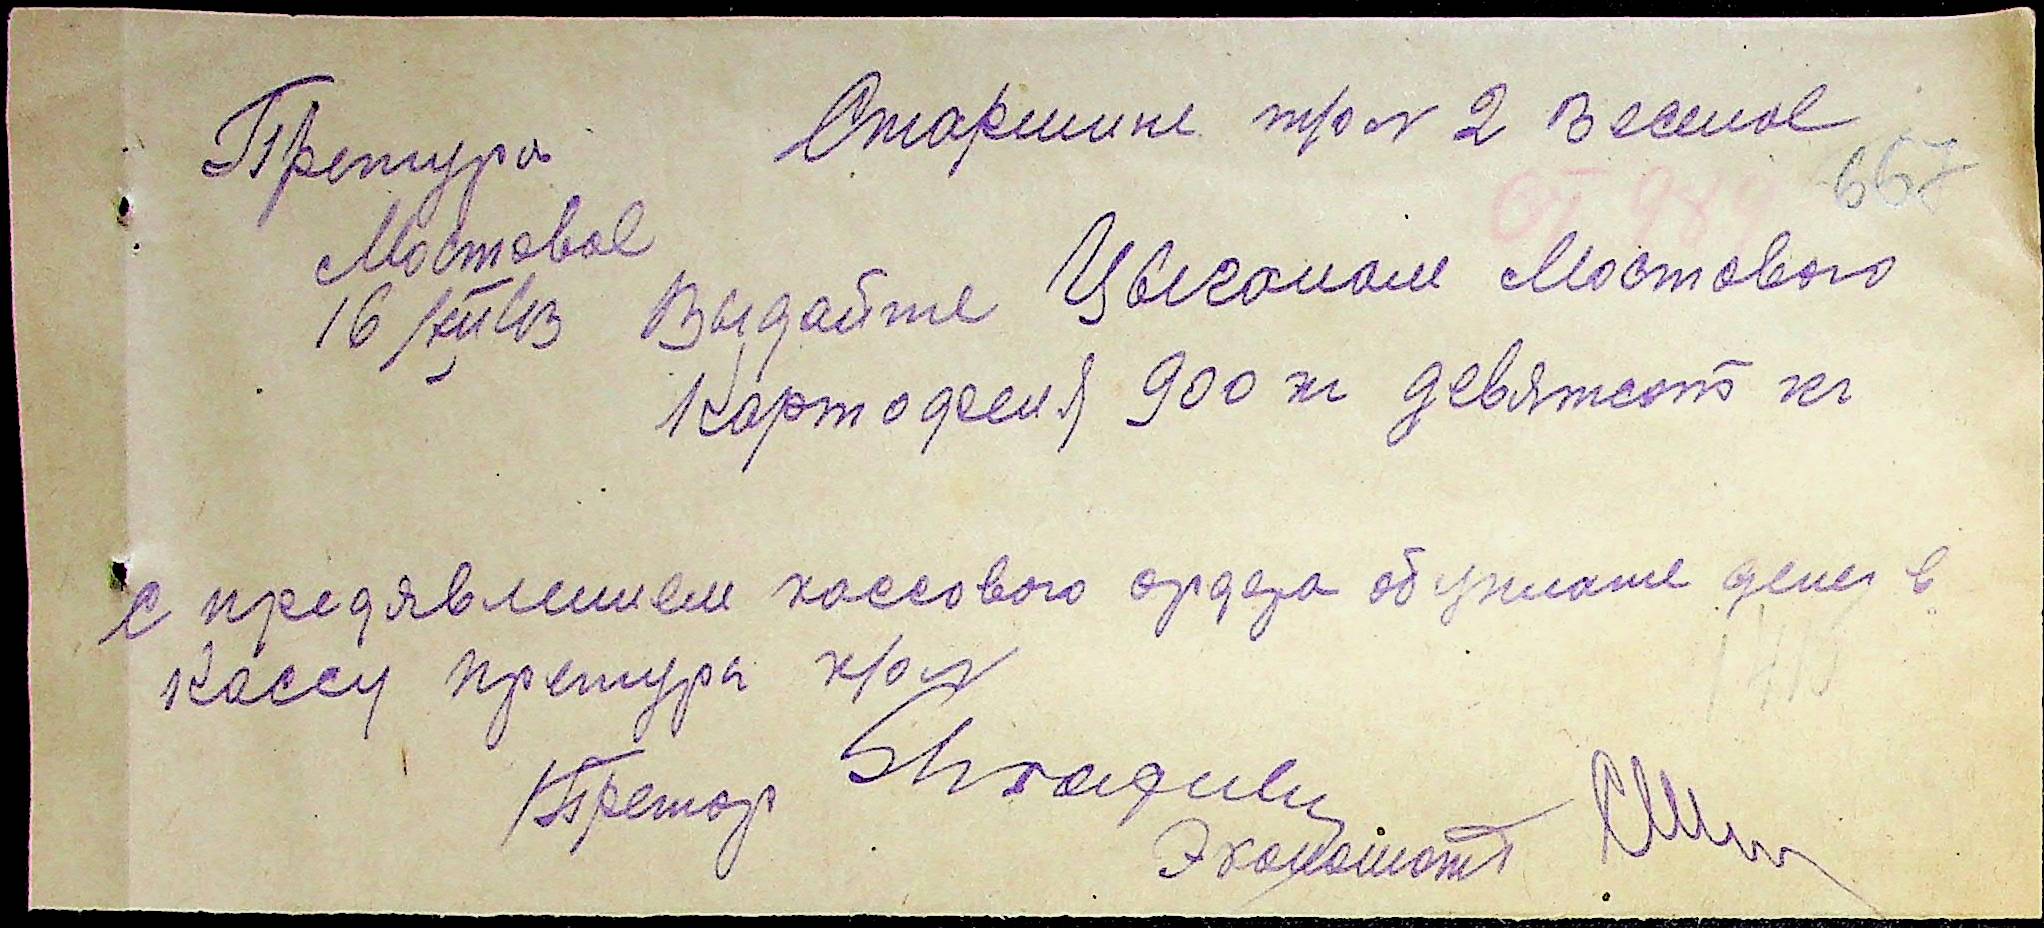 Претура
Мостовое
16/XII 43
Старшине т/р № 2 Веселое
667
ОТ 989
Выдайте Цыганам Мостового
Картофеля 900 кг девятсот кг
С предявлением кассового ордера об уплате денег в
Кассу претуры
Претор
Экономот